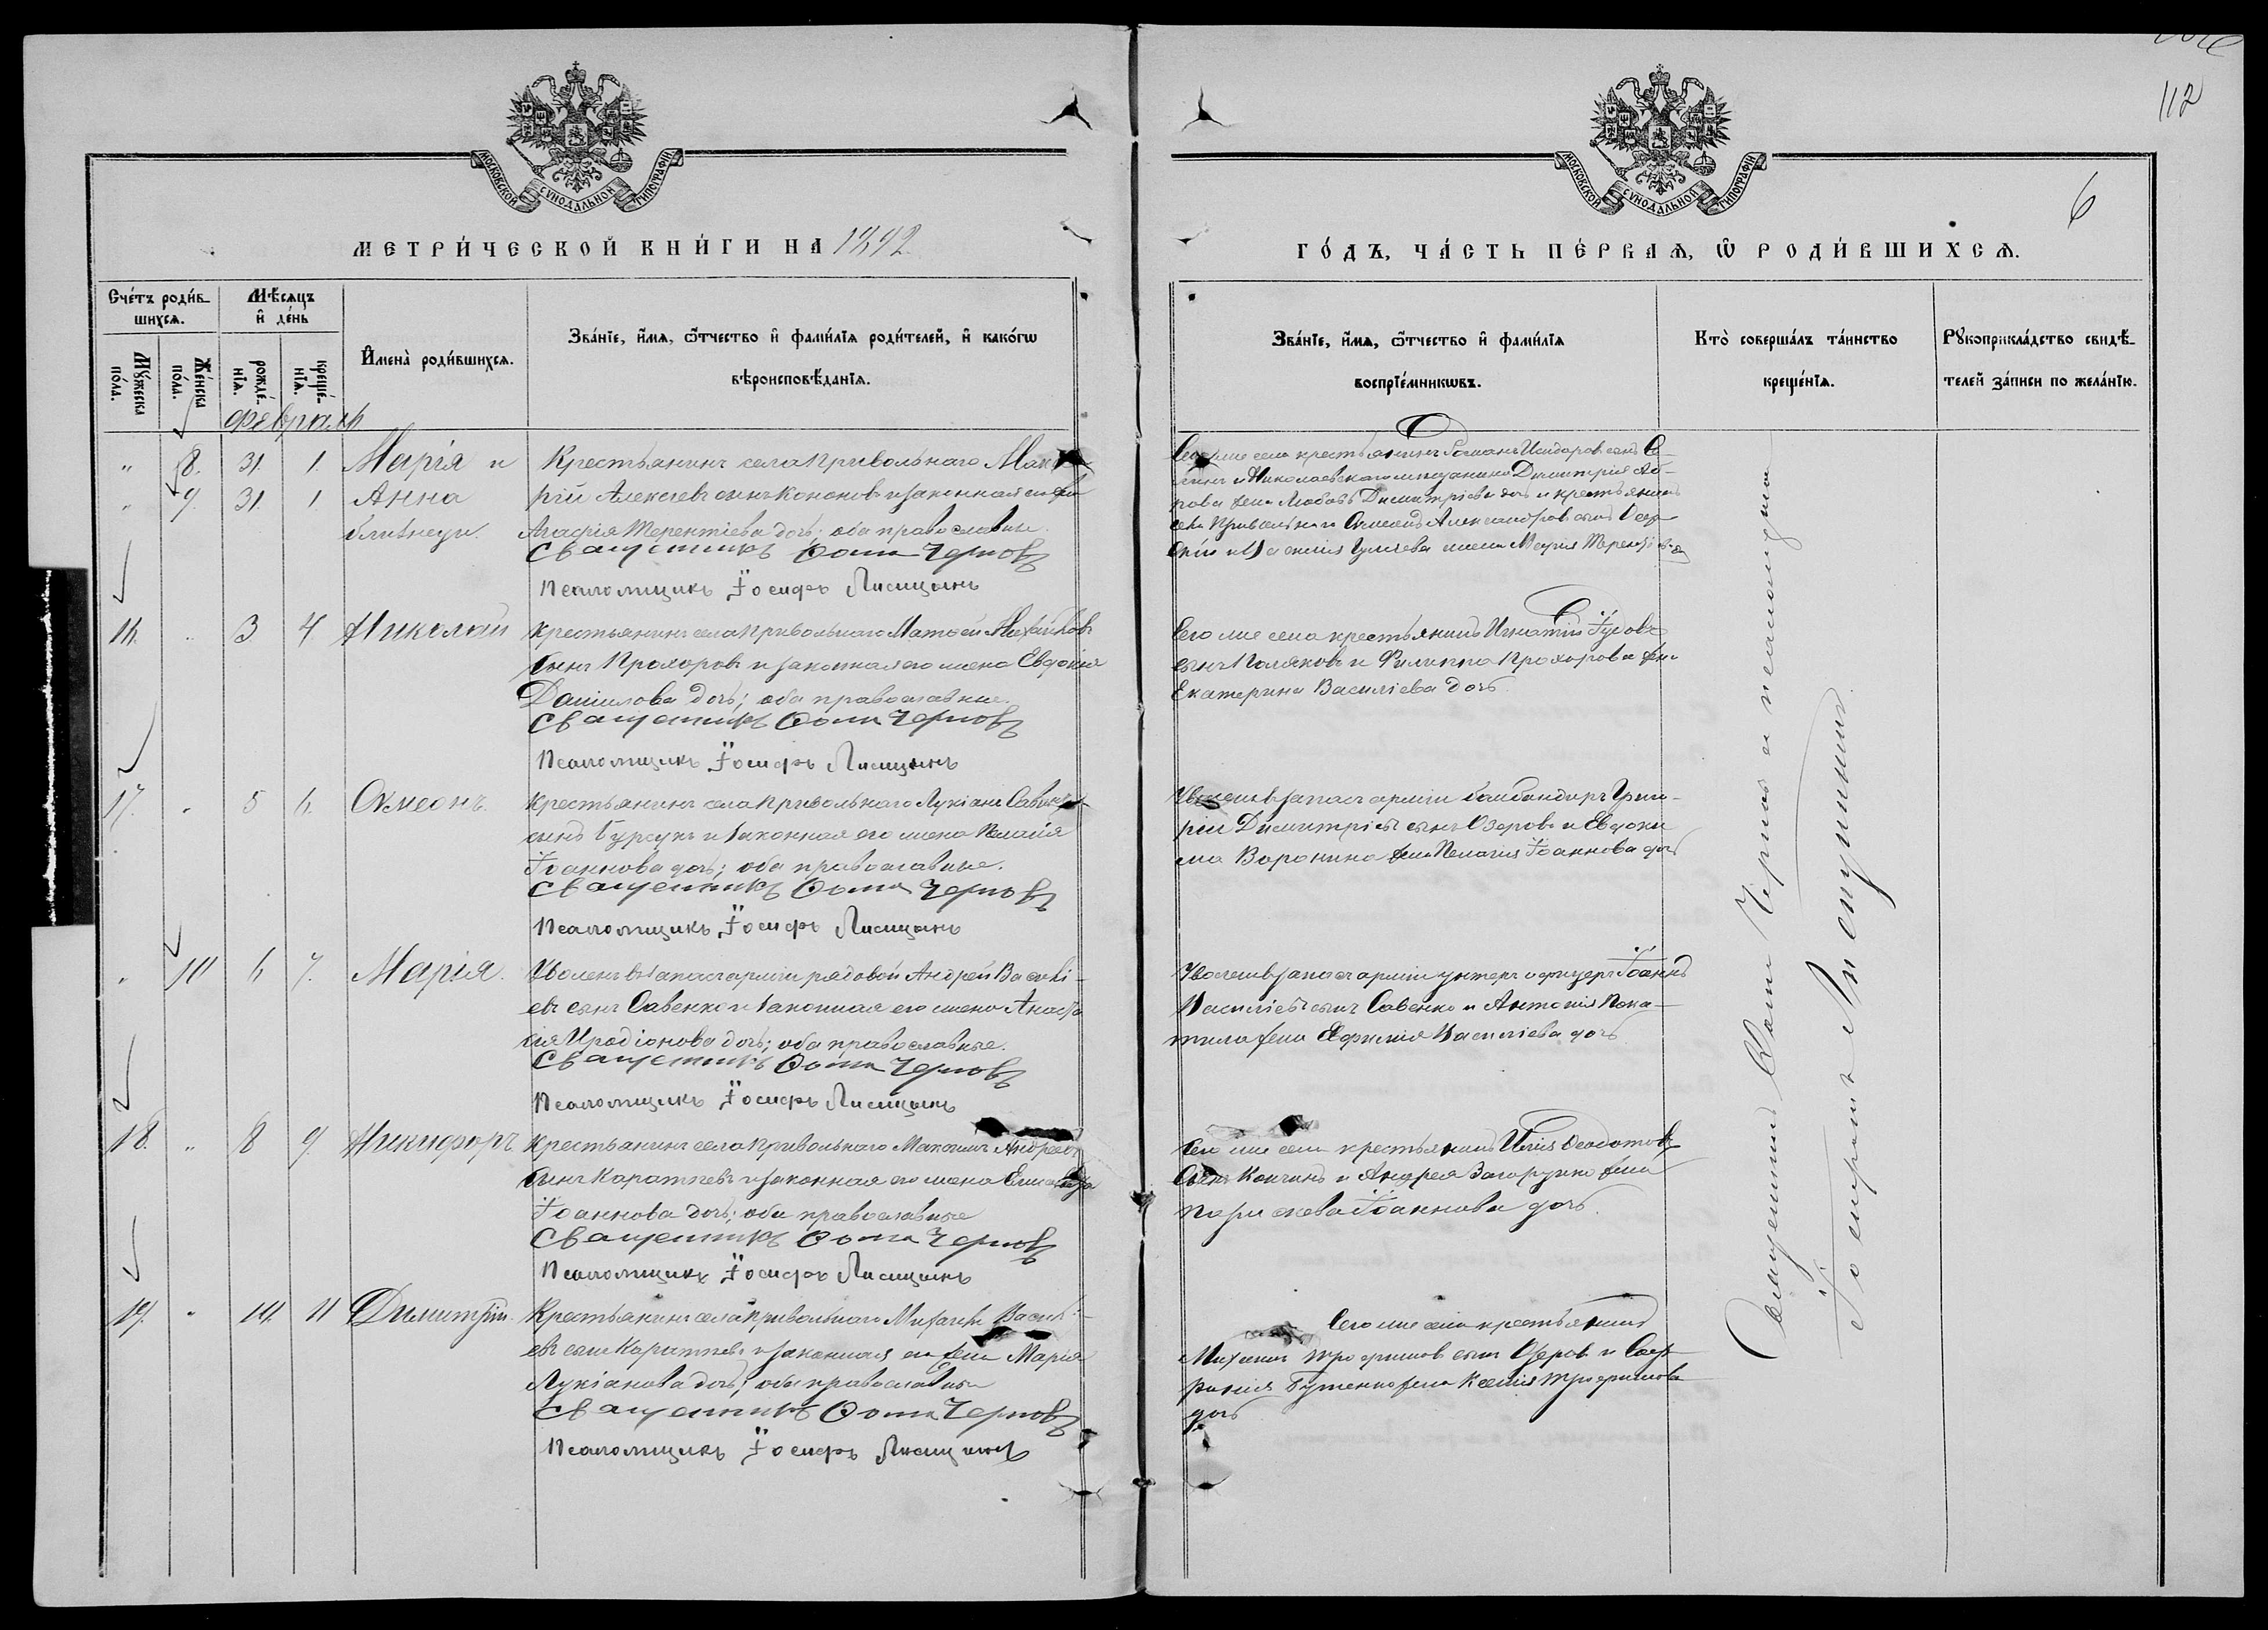 112
6
МОСКОВСКОЙ СѴНОДАЛЬНОЙ ТИПОГРАФІИ
МОСКОВСКОЙ СѴНОДАЛЬНОЙ ТИПОГРАФІИ
МЕТРИ́ЧЕСКОЙ КНИ́ГИ НА 1892
ГО́ДЪ, ЧА́СТЬ ПЕ́РВАѦ, Ѡ҆ РОДИ́ВШИХСѦ.
Сче́тъ роди́в-
шихсѧ.
Мѣ́сѧцъ
и҆ де́нь
Мꙋ́жеска по́ла.
Же́нска по́ла.
рожде́-нїѧ.
креще́-нїѧ.
И҆мена̀ роди́вшихсѧ.
Зва́нїе, и҆́мѧ, ѻ҆́тчество и҆ фами́лїѧ роди́телей, и҆ како́гѡ
вѣроисповѣ́данїѧ.
Зва́нїе, и҆́мѧ, ѻ҆́тчество и҆ фами́лїѧ
воспрїе́мникѡвъ.
Кто̀ соверша́лъ та́инство
креще́нїѧ.
Рꙋкоприкла́дство свидѣ́-
телей за́писи по жела́нїю.
февраль
" 8. 31. 1. Марія и
" 9. 31. 1 Анна
близнецы.
Крестьянинъ села Привольнаго
рій Алексѣевъ сынъ Кононовъ и законная
Агафія Терентіева дочь; оба православные.
Священникъ Ѳома Черновъ
Псаломщикъ Іосифъ Лисицынъ
Сего же села крестьянинъ Романъ Исидоровъ сынъ
и Николаевскаго мещанина Димитрія
жена Любовь Димитріева дочь и крестьянинъ
села Привольнаго Симеонъ Александровъ сынъ
жена Марія
16. " 3 4 Николай
Крестьянинъ села Привольнаго Матѳей Михайловъ
сынъ Прохоровъ и законная его жена Евдокія
Данилова дочь; оба православные.
Священникъ Ѳома Черновъ
Псаломщикъ Іосифъ Лисицынъ
Сего же села крестьянинъ Игнатій
сынъ Поляковъ и Филиппа Прохорова жена
Екатерина Василіева дочь
17. " 5 6. Симеонъ
Крестьянинъ села Привольнаго Лукіанъ
сынъ Бурсукъ и законная его жена Пелагія
Іоаннова дочь; оба православные.
Священникъ Ѳома Черновъ
Псаломщикъ Іосифъ Лисицынъ
Уволен. въ запасъ арміи бомбандиръ Григо-
рій Димитріевъ сынъ Озеровъ и Евдоки
ма Воронина жена Пелагія Іоаннова дочь
" 10 6 7. Марія.
Уволенъ въ запасъ арміи рядовой Андрей Василі-
евъ сынъ Савенко и законная его жена Анаста
сія Иродіонова дочь; оба православные.
Священникъ Ѳома Черновъ
Псаломщикъ Іосифъ Лисицынъ
Уволен. въ запасъ арміи унтеръ офицеръ Іоаннъ
Василіевъ сынъ Савенко и Антонія Пока-
тила жена Евфимія Василіева дочь
18. " 8 9. Никифоръ
Крестьянинъ села Привольнаго Максимъ Андреевъ
сынъ Каратаевъ и законная его жена Елисавета
Іоаннова дочь; оба православные
Священникъ Ѳома Черновъ
Псаломщикъ Іосифъ Лисицынъ
Сего же села крестьянинъ Илія Ѳеодотовъ
сынъ и Андрея Загорулко жена
Іоаннова дочь.
19. " 10. 11 Димитрій.
Крестьянинъ села Привольнаго Михаилъ Василі-
евъ сынъ Каратаевъ и законная его жена Марія
Лукіанова дочь; оба православные
Священникъ Ѳома Черновъ
Псаломщикъ Іосифъ Лисицынъ
Сего же села крестьянинъ
Михаилъ Трофимовъ сынъ Озеровъ и Соф-
ронія Бутенко жена Ксенія Трофимова
дочь
Священникъ Ѳома Черновъ и псаломщикъ
Іосифъ Лисицынъ